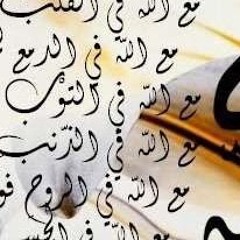 مع الله في القلب
مع الله في الدمع
مع الله في التوب
مع الله في الذنب
مع الله في الروح فو
مع الله في